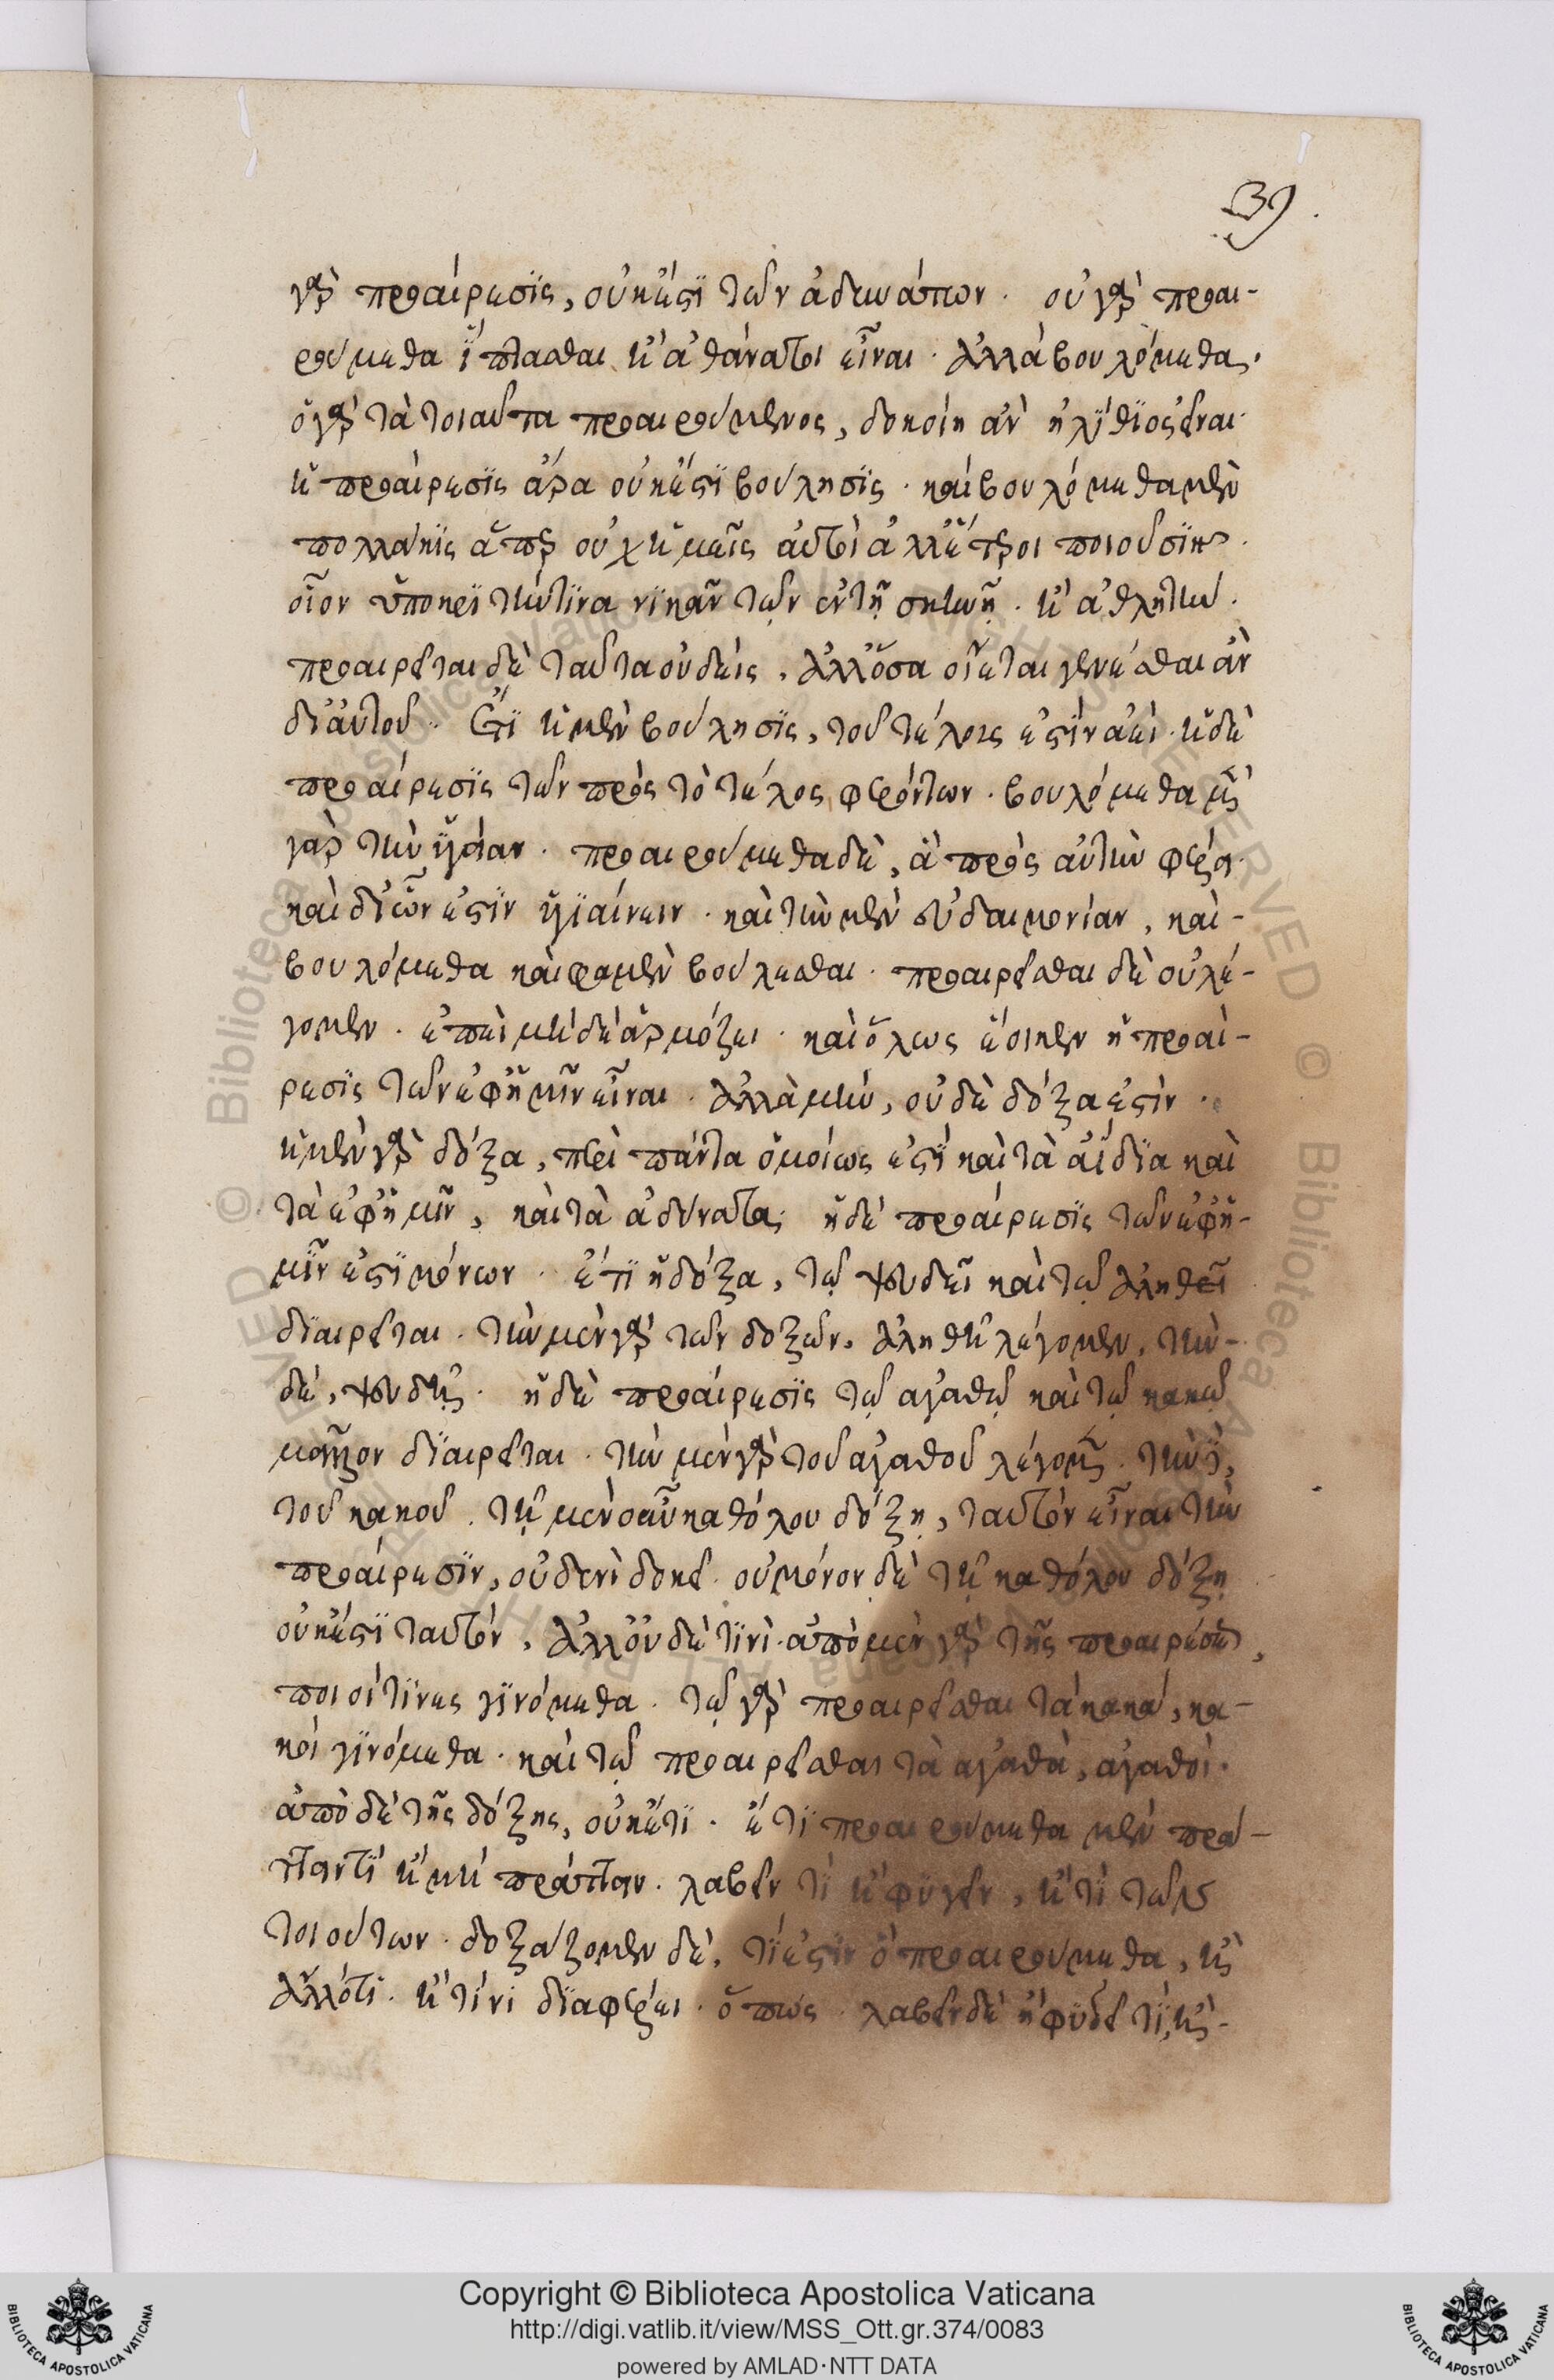 39.
γὰρ προαίρεσις, οὐκ ἔστι τῶν ἀδυνάτων. οὐ γὰρ προαι-
ρούμεθα ἵπτασθαι ἢ ἀθάνατοι εἶναι. ἀλλὰ βουλόμεθα.
ὁ γὰρ τὰ τοιαῦτα προαιρούμενος, δοκοίη ἂν ἠλίθιος εἶναι.
ἡ προαίρεσις ἄρα οὐκ ἔστι βούλησις. καὶ βουλόμεθα μὲν
πολλάκις ἅπερ οὐχ ἡμεῖς αὐτοὶ ἀλλ' ἕτεροι ποιοῦσιν.
οἷον ὑποκριτήν τινα νικᾶν τῶν ἐν τῇ σκηνῇ. ἢ ἀθλητήν.
προαιρεῖται δὲ ταῦτα οὐδείς, ἀλλ' ὅσα οἴεται γενέσθαι ἂν
δι' αὐτοῦ. Ἔτι ἡ μὲν βούλησις, τοῦ τέλους ἐστὶν ἀεί. ἡ δὲ
προαίρεσις τῶν πρὸς τὸ τέλος φερόντων. βουλόμεθα μὲν
γὰρ τὴν ὑγείαν. προαιρούμεθα δὲ, ἃ πρὸς αὐτὴν φέρει.
καὶ δι' ὧν ἐστὶν ὑγιαίνειν. καὶ τὴν μὲν εὐδαιμονίαν, καὶ-
βουλόμεθα καὶ φαμὲν βούλεσθαι. προαιρεῖσθαι δὲ οὐ λέ-
γομεν. ἐπεὶ μὴ δὲ ἁρμόζει. καὶ ὅλως ἔοικεν ἡ προαί-
ρεσις τῶν ἐφ' ἡμῖν εἶναι. ἀλλὰ μὴν, οὐδὲ δόξα ἐστὶν.
ἡ μὲν γὰρ δόξα, περὶ πάντα ὁμοίως ἐστὶ καὶ τὰ ἀΐδια καὶ
τὰ ἐφ' ἡμῖν, καὶ τὰ ἀδύνατα. ἡ δὲ προαίρεσις τῶν ἐφ' ἡ-
μῖν ἐστὶ μόνων. ἔτι ἡ δόξα, τῷ ψευδεῖ καὶ τῷ ἀληθεῖ
διαιρεῖται. τὴν μὲν γὰρ τῶν δοξῶν, ἀληθῆ λέγομεν, τὴν-
δὲ, ψευδῆ. ἡ δὲ προαίρεσις τῷ ἀγαθῷ καὶ τῷ κακῷ
μᾶλλον διαιρεῖται. τὴν μὲν γὰρ τοῦ ἀγαθοῦ λέγομεν. τὴν δὲ,
τοῦ κακοῦ. τῇ μὲν οὖν καθόλου δόξῃ, ταυτὸν εἶναι τὴν
προαίρεσιν, οὐδενὶ δοκεῖ. οὐ μόνον δὲ τῇ καθόλου δόξῃ
οὐκ ἔστι ταυτόν, ἀλλ' οὐδὲ τινί. ἀπὸ μὲν γὰρ τῆς προαιρέσεως,
ποιοί τινες γινόμεθα. τῷ γὰρ προαιρεῖσθαι τὰ κακά, κα-
κοὶ γινόμεθα. καὶ τῷ προαιρεῖσθαι τὰ ἀγαθὰ, ἀγαθοί.
ἀπὸ δὲ τῆς δόξης, οὐκ ἔτι. ἔτι προαιρούμεθα μὲν πρά-
ττειν τί ἢ μὴ πράττειν. λαβεῖν τί ἢ φυγεῖν, ἤ τι τῶν
τοιούτων. δοξάζομεν δὲ, τί ἐστὶν ὃ προαιρούμεθα, ἢ
ἄλλό τι. ἢ τίνι διαφέρει. ὅπως. λαβεῖν δὲ ἢ φυγεῖν τι, ἢ-
Copyright © Biblioteca Apostolica Vaticana
http://digi.vatlib.it/view/MSS_Ott.gr.374/0083
powered by AMLAD·NTT DATA